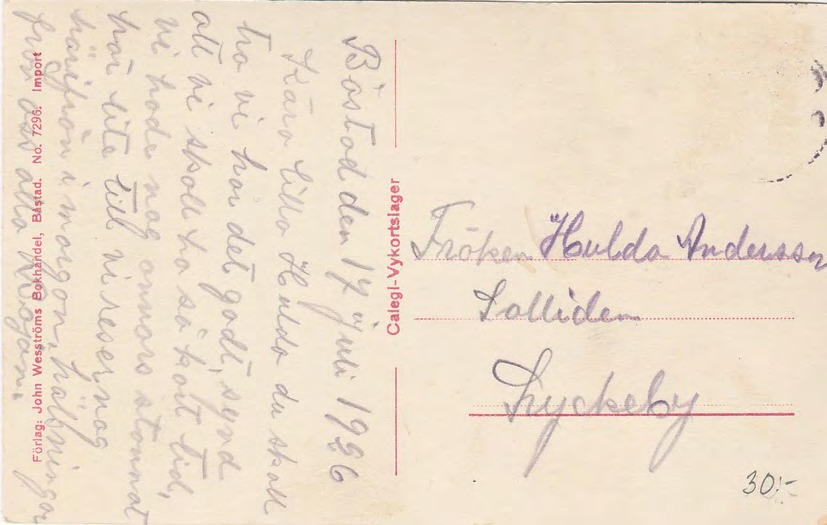 Båstad den 17 juli 1926
Kära lilla Hulda du skall
tro vi har det godt, synd
att vi skall ha så kort tid,
vi hade nog annars stannat
här lite till vi reser nog
härifrån i morgon, hälsningar
från oss alla
Förlag: John Wesströms Bokhandel, Båstad. No. 7296. Import
Calegi-Vykortslager
Fröken Hulda Andersson
Solliden
Lyckeby
30:-